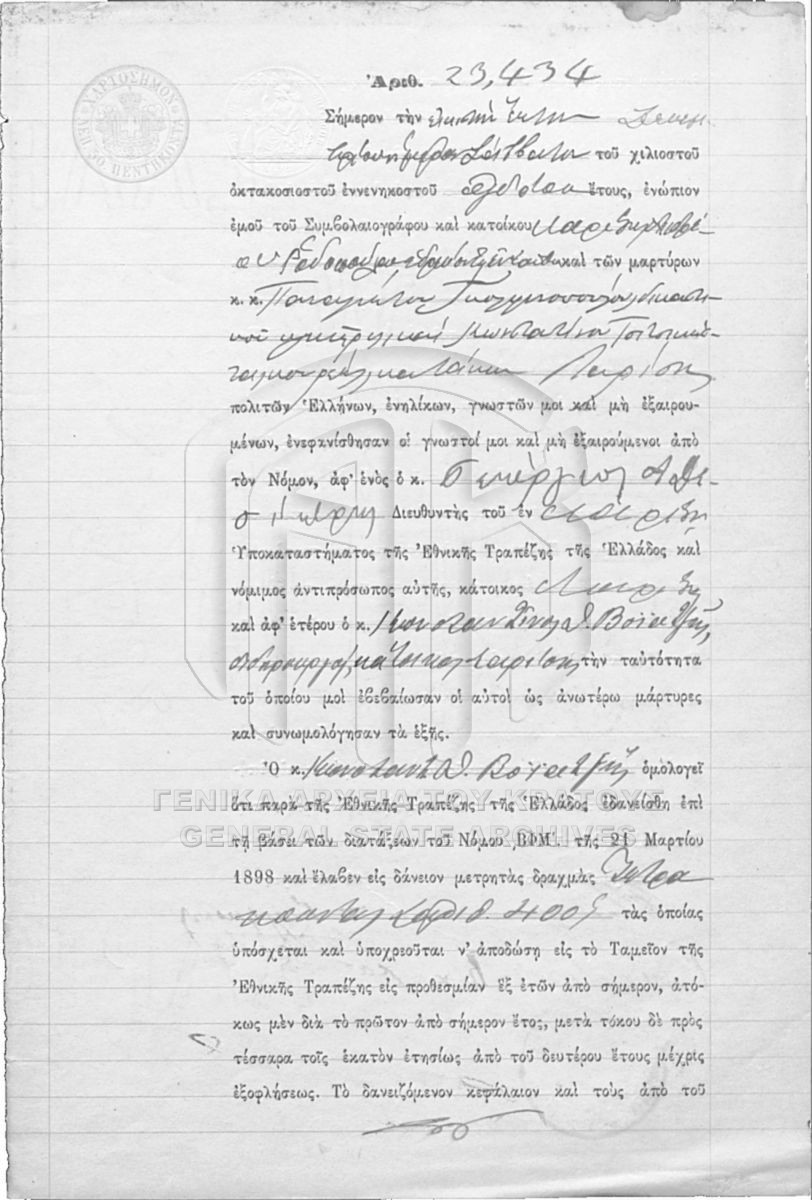 ΧΑΡΤΟΣΗΜΟΝ
ΛΕΠ. 50 ΠΕΝΤΗΚΟΝΤΑ
Ἀριθ. 23,434
Σήμερον τὴν εἰκοστὴν ἕκτην
Σάββατον τοῦ χιλιοστοῦ
ὀκτακοσιοστοῦ ἐννενηκοστοῦ ὀγδόου ἔτους, ἐνώπιον
ἐμοῦ τοῦ Συμβολαιογράφου καὶ κατοίκου Λαρίσης
καὶ τῶν μαρτύρων
κ. κ. Παναγιώτου
καὶ Κωνσταντίνου
κατοίκων Λαρίσης
πολιτῶν Ἑλλήνων, ἐνηλίκων, γνωστῶν μοι καὶ μὴ ἐξαιρου-
μένων, ἐνεφανίσθησαν οἱ γνωστοί μοι καὶ μὴ ἐξαιρούμενοι ἀπὸ
τὸν Νόμον, ἀφ' ἑνὸς ὁ κ. Γεώργιος
Διευθυντὴς τοῦ ἐν Λαρίσῃ
Ὑποκαταστήματος τῆς Ἐθνικῆς Τραπέζης τῆς Ἑλλάδος καὶ
νόμιμος ἀντιπρόσωπος αὐτῆς, κάτοικος Λαρίσης
καὶ ἀφ' ἑτέρου ὁ κ. Κωνσταντῖνος Δ. Βογιατζῆς,
σιδηρουργός, κάτοικος Λαρίσης τὴν ταὐτότητα
τοῦ ὁποίου μοὶ ἐβεβαίωσαν οἱ αὐτοὶ ὡς ἀνωτέρω μάρτυρες
καὶ συνωμολόγησαν τὰ ἑξῆς.
Ὁ κ. Κωνσταντ. Δ. Βογιατζῆς ὁμολογεῖ
ὅτι παρὰ τῆς Ἐθνικῆς Τραπέζης τῆς Ἑλλάδος ἐδανείσθη ἐπὶ
ΓΕΝΙΚΑ ΑΡΧΕΙΑ ΤΟΥ ΚΡΑΤΟΥΣ
GENERAL STATE ARCHIVES
τῇ βάσει τῶν διατάξεων τοῦ Νόμου ͵ΒΦΜ΄. τῆς 21 Μαρτίου
1898 καὶ ἔλαβεν εἰς δάνειον μετρητὰς δραχμὰς Τετρα
κοσίας ἀριθ. 400 τὰς ὁποίας
ὑπόσχεται καὶ ὑποχρεοῦται ν' ἀποδώσῃ εἰς τὸ Ταμεῖον τῆς
Ἐθνικῆς Τραπέζης εἰς προθεσμίαν ἓξ ἐτῶν ἀπὸ σήμερον, ἀτό-
κως μὲν διὰ τὸ πρῶτον ἀπὸ σήμερον ἔτος, μετὰ τόκου δὲ πρὸς
τέσσαρα τοῖς ἑκατὸν ἐτησίως ἀπὸ τοῦ δευτέρου ἔτους μέχρις
ἐξοφλήσεως. Τὸ δανειζόμενον κεφάλαιον καὶ τοὺς ἀπὸ τοῦ